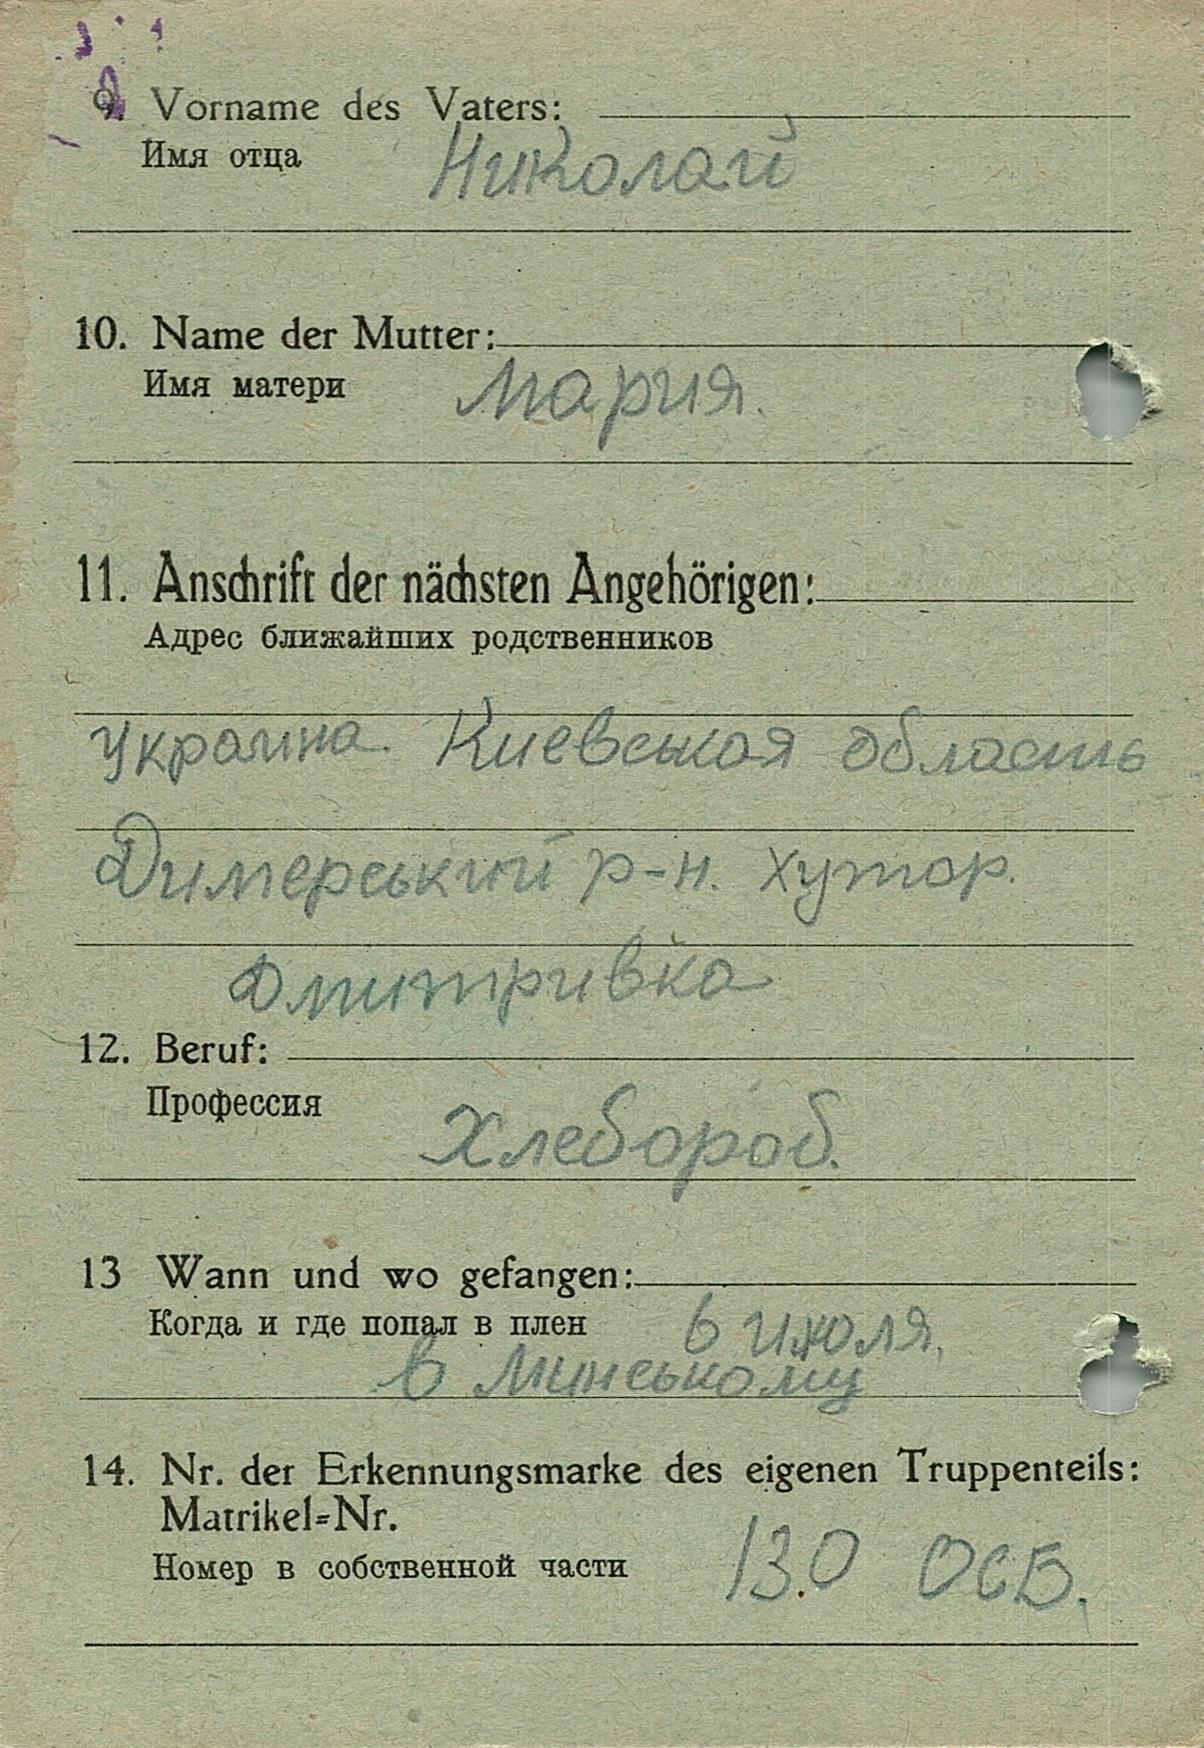 9. Vorname des Vaters:
Имя отца Николай
10. Name der Mutter:
Имя матери Мария.
11. Anschrift der nächsten Angehörigen:
Адрес ближайших родственников
Украина. Киевськая область
Димерський р-н. хутор.
Дмитривка
12. Beruf:
Профессия Хлебороб.
13 Wann und wo gefangen:
Когда и где попал в плен 6 июля.
в Минському
14. Nr. der Erkennungsmarke des eigenen Truppenteils:
Matrikel=Nr.
Номер в собственной части 130 ОСБ.